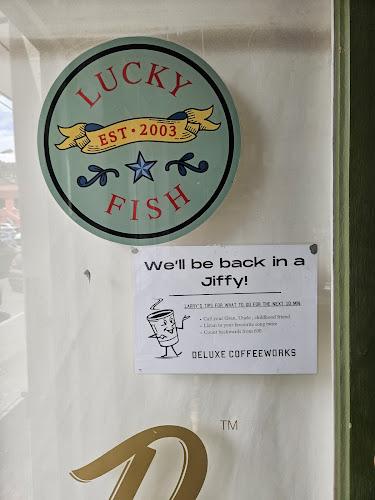 LUCKY
EST · 2003
FISH
We'll be back in a
Jiffy!
LARRY'S TIPS FOR WHAT TO DO FOR THE NEXT 10 MIN
- Call your Gran, Uncle, childhood friend
- Listen to your favourite song twice
- Count backwards from 600
DELUXE COFFEEWORKS
TM
D